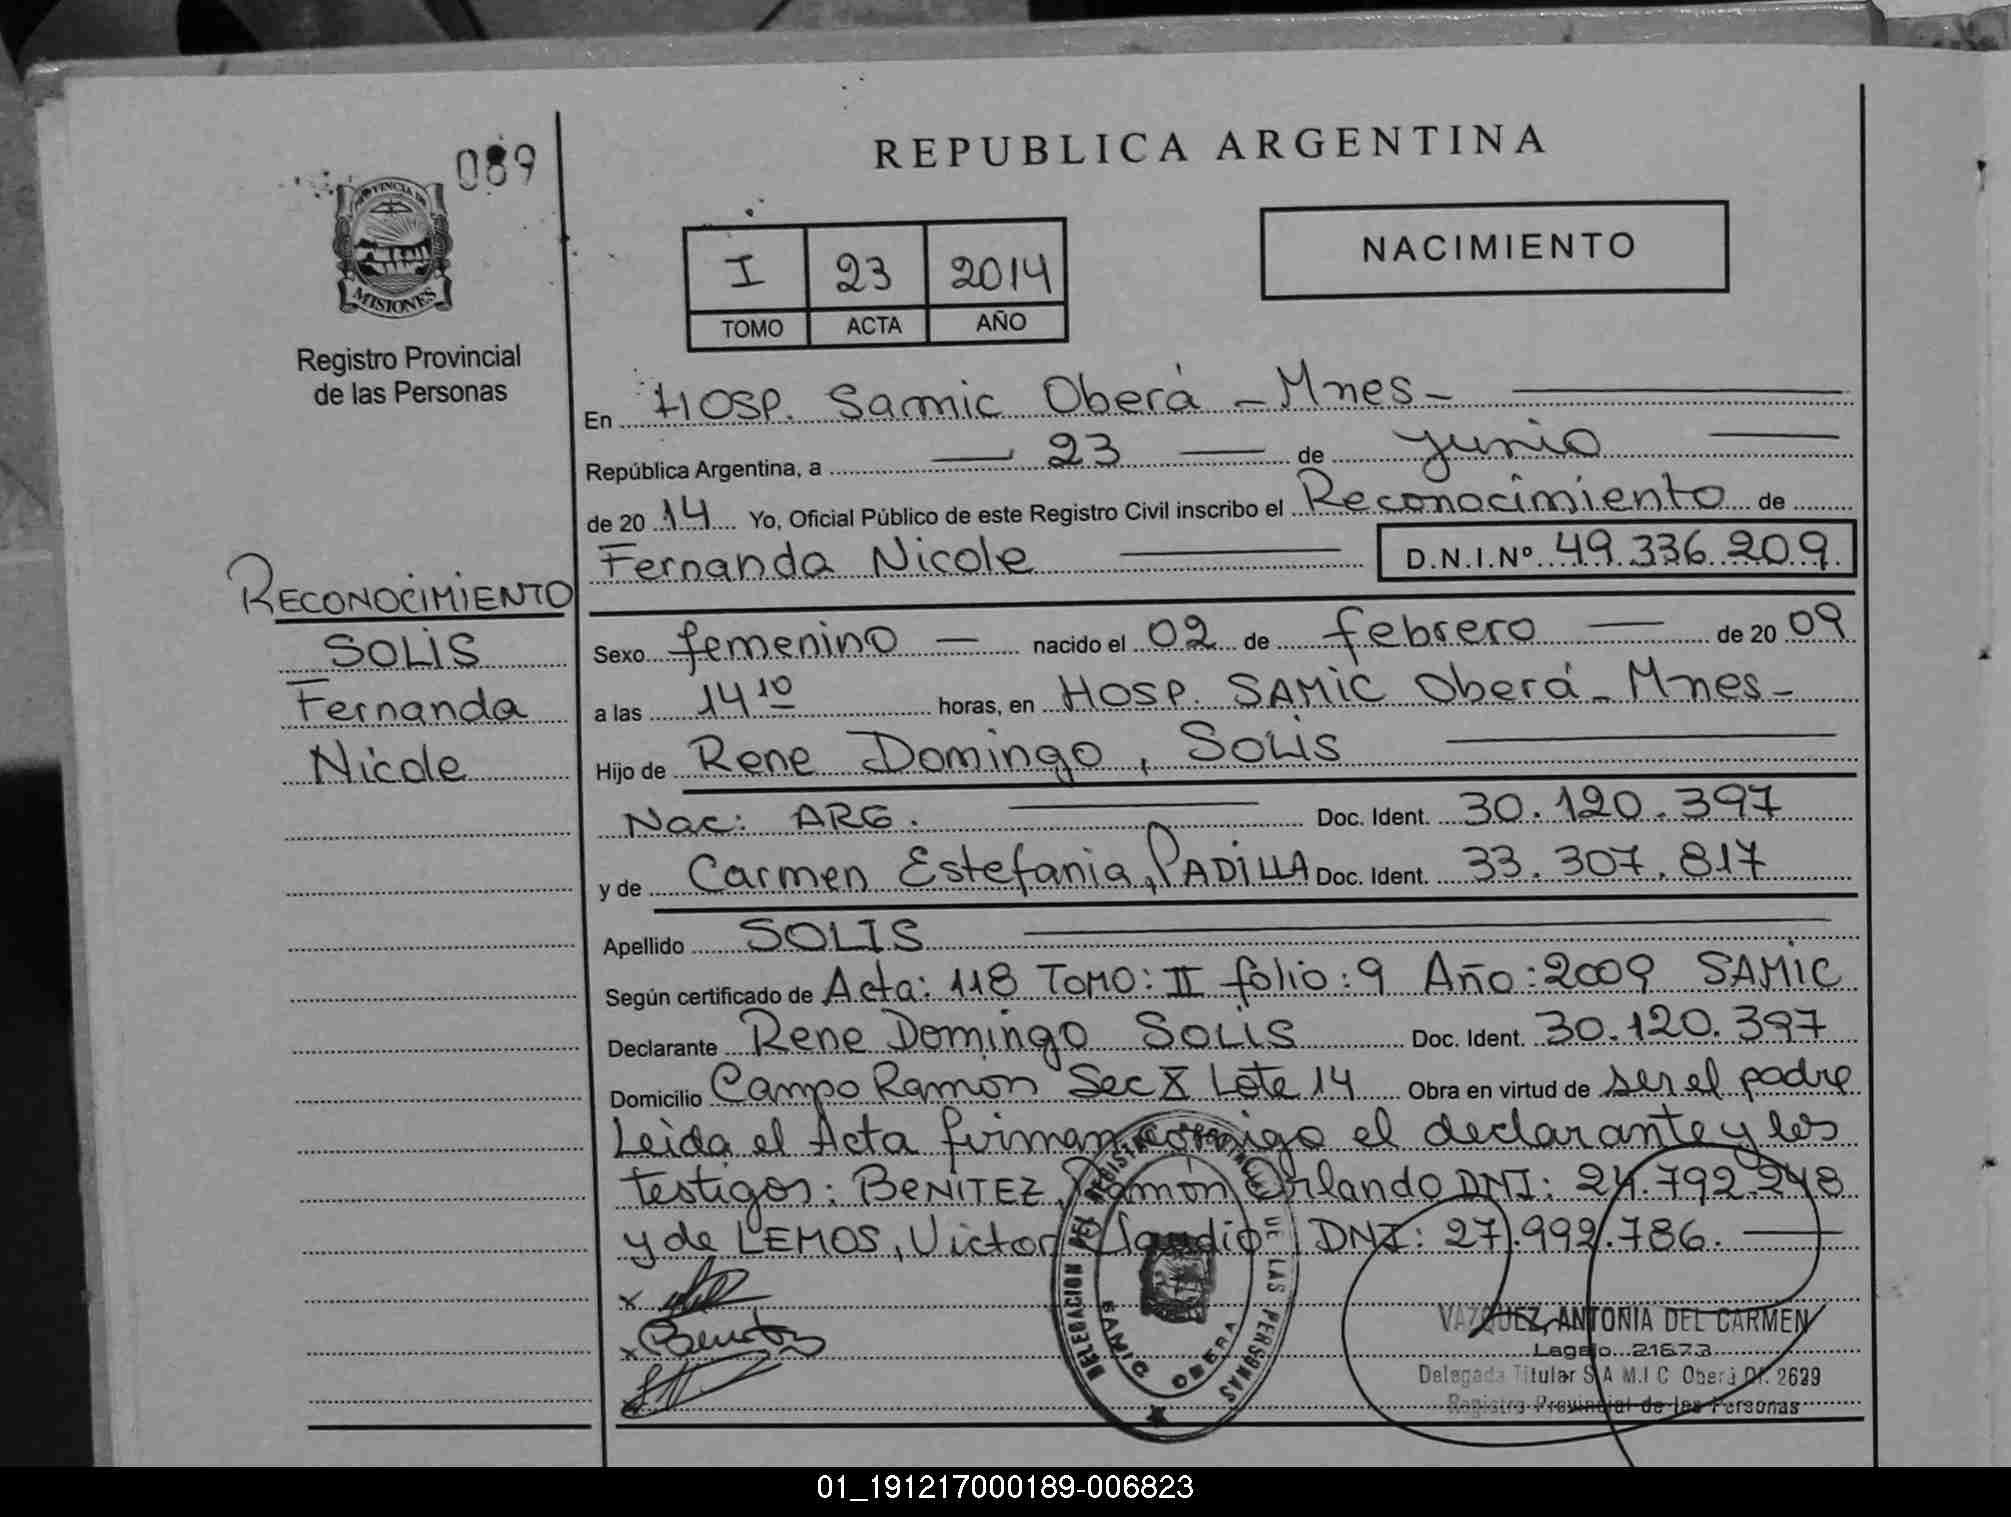 089
PROVINCIA DE
MISIONES
Registro Provincial
de las Personas
REPUBLICA ARGENTINA
I 23 2014
TOMO ACTA AÑO
NACIMIENTO
En Hosp. Samic Oberá - Mnes -
República Argentina, a 23 de junio
de 2014 Yo, Oficial Público de este Registro Civil inscribo el Reconocimiento de
Fernanda Nicole D.N.I.Nº 49.336.209.
RECONOCIMIENTO
SOLIS
Fernanda
Nicole
Sexo femenino nacido el 02 de febrero de 2009
a las 14 10 horas, en Hosp. SAMIC Oberá - Mnes -
Hijo de Rene Domingo, SOLIS
Nac: ARG. Doc. Ident. 30.120.397
y de Carmen Estefania, PADILLA Doc. Ident. 33.307.817
Apellido SOLIS
Según certificado de Acta: 118 TOMO: II folio: 9 Año: 2009 SAMIC
Declarante Rene Domingo SOLIS Doc. Ident. 30.120.397
Domicilio Campo Ramón Sec X Lote 14 Obra en virtud de ser el padre
Leida el Acta firman conmigo el declarante y los
testigos: BENITEZ, Ramón Orlando DNI: 24.792.248
y de LEMOS, Victor Claudio DNI: 27.992.786.
x
x Benitez
x
DELEGACION DEL REGISTRO PROVINCIAL DE LAS PERSONAS
SAMIC OBERA
VAZQUEZ, ANTONIA DEL CARMEN
Legajo 21673
Delegada Titular S.A.M.I.C Oberá Of. 2629
Registro Provincial de las Personas
01_191217000189-006823